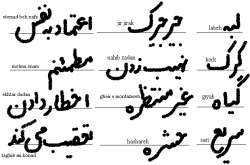 etemad beh nafs jir jirak labeh
اعتماد به نفس جیرجیرک لبه
motma enam nahib zadan kerk
مطمئنم نهیب زدن کرک
ekhtar dadan ghair e montazereh giyah
اخطار دادن غیر منتظره گیاه
taghib mi konad hashareh sari
تعقیب می کند حشره سریع